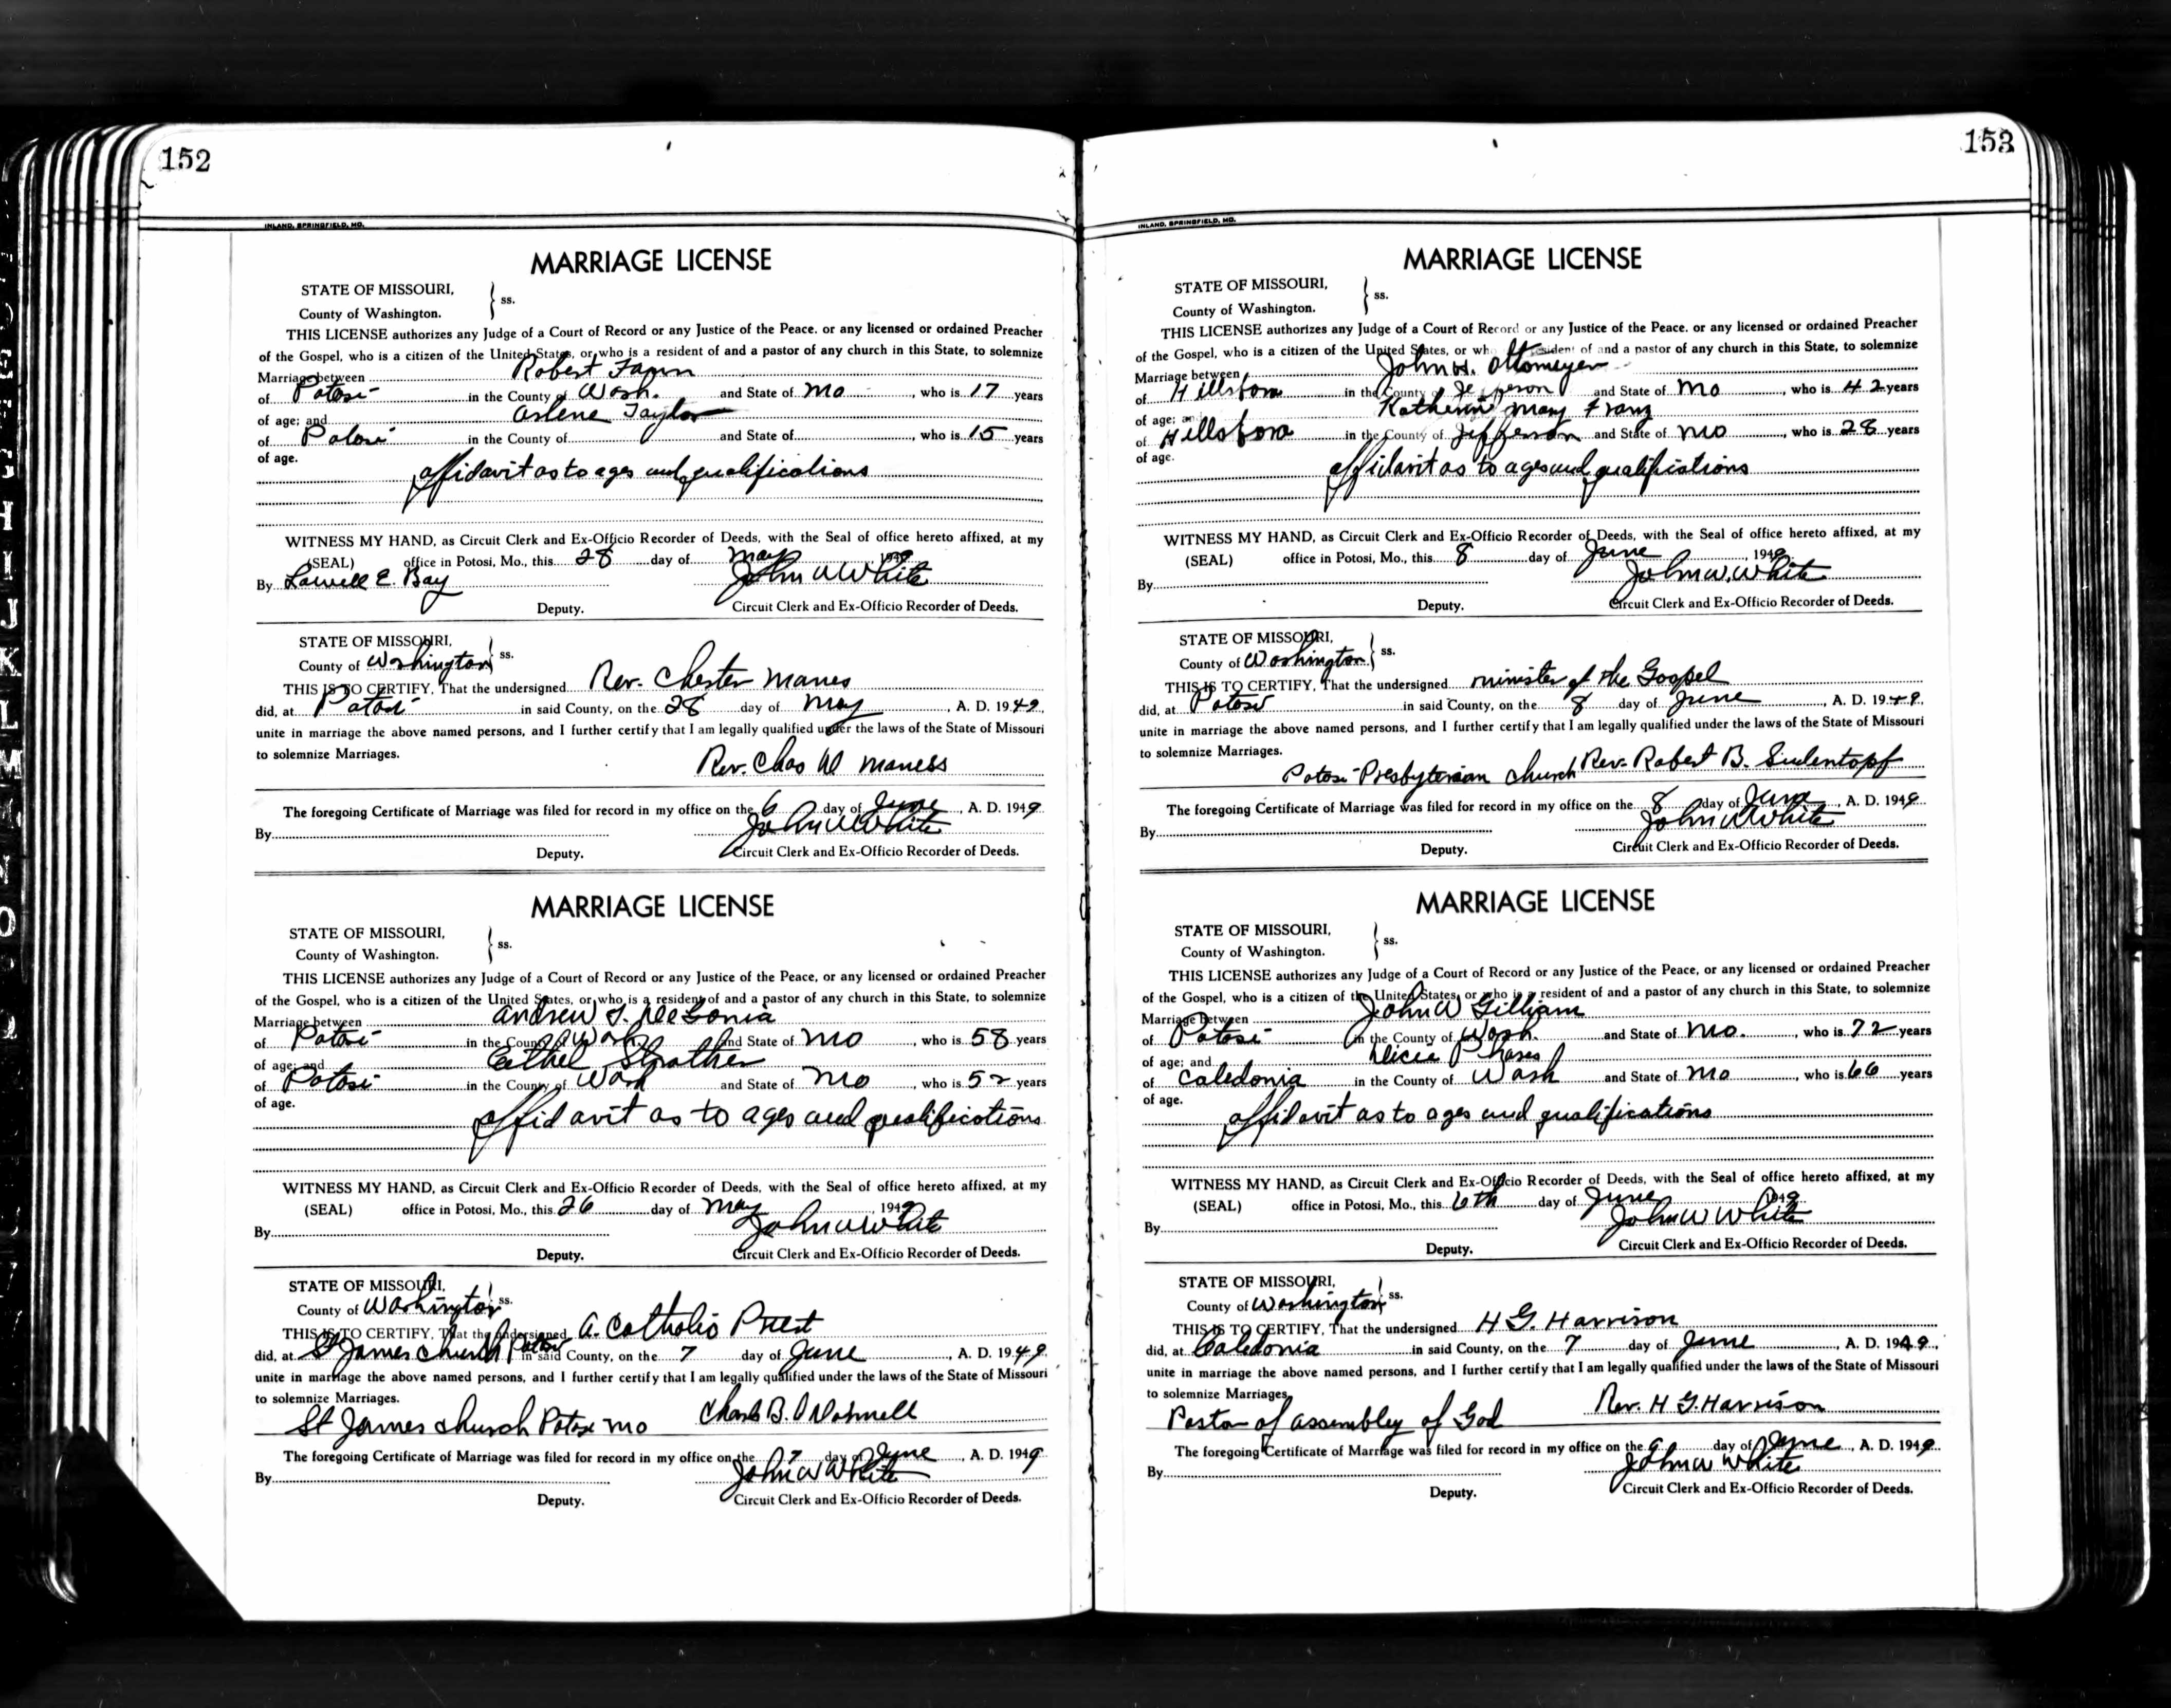 152
INLAND, SPRINGFIELD, MO.
MARRIAGE LICENSE
STATE OF MISSOURI,
County of Washington. } ss.
THIS LICENSE authorizes any Judge of a Court of Record or any Justice of the Peace. or any licensed or ordained Preacher
of the Gospel, who is a citizen of the United States, or who is a resident of and a pastor of any church in this State, to solemnize
Marriage between Robert
of Potosi in the County of Wash. and State of Mo , who is 17 years
of age; and Arlene Taylor
of Potosi in the County of and State of , who is 15 years
of age.
affidavit as to ages and qualifications
WITNESS MY HAND, as Circuit Clerk and Ex-Officio Recorder of Deeds, with the Seal of office hereto affixed, at my
(SEAL) office in Potosi, Mo., this 28 day of May 1949
By Lowell E. Bay John W White
Deputy. Circuit Clerk and Ex-Officio Recorder of Deeds.
STATE OF MISSOURI,
County of Washington } ss.
THIS IS TO CERTIFY, That the undersigned Rev. Chester Manes
did, at Potosi in said County, on the 28 day of May , A. D. 1949,
unite in marriage the above named persons, and I further certify that I am legally qualified under the laws of the State of Missouri
to solemnize Marriages.
Rev. Chas W Maness
The foregoing Certificate of Marriage was filed for record in my office on the 6 day of June , A. D. 1949
By John W White
Deputy. Circuit Clerk and Ex-Officio Recorder of Deeds.
MARRIAGE LICENSE
STATE OF MISSOURI,
County of Washington. } ss.
THIS LICENSE authorizes any Judge of a Court of Record or any Justice of the Peace, or any licensed or ordained Preacher
of the Gospel, who is a citizen of the United States, or who is a resident of and a pastor of any church in this State, to solemnize
Marriage between Andrew J. DeGonia
of Potosi in the County of Wash and State of Mo , who is 58 years
of age; and Eathel Strather
of Potosi in the County of Wash and State of Mo , who is 52 years
of age.
affidavit as to ages and qualifications
WITNESS MY HAND, as Circuit Clerk and Ex-Officio Recorder of Deeds, with the Seal of office hereto affixed, at my
(SEAL) office in Potosi, Mo., this 26 day of May , 1949
By John W White
Deputy. Circuit Clerk and Ex-Officio Recorder of Deeds.
STATE OF MISSOURI,
County of Washington } ss.
THIS IS TO CERTIFY, That the undersigned A. Catholic Priest
did, at St James Church Potosi in said County, on the 7 day of June , A. D. 1949,
unite in marriage the above named persons, and I further certify that I am legally qualified under the laws of the State of Missouri
to solemnize Marriages.
St James Church Potosi Mo B. O'Donnell
The foregoing Certificate of Marriage was filed for record in my office on the 7 day of June , A. D. 1949
By John W White
Deputy. Circuit Clerk and Ex-Officio Recorder of Deeds.
153
INLAND, SPRINGFIELD, MO.
MARRIAGE LICENSE
STATE OF MISSOURI,
County of Washington. } ss.
THIS LICENSE authorizes any Judge of a Court of Record or any Justice of the Peace. or any licensed or ordained Preacher
of the Gospel, who is a citizen of the United States, or who resident of and a pastor of any church in this State, to solemnize
Marriage between John H. Ottomeyer
of Hillsboro in the County of Jefferson and State of Mo , who is 42 years
of age; and Katherine Mary Franz
of Hillsboro in the County of Jefferson and State of Mo , who is 28 years
of age.
affidavit as to ages and qualifications
WITNESS MY HAND, as Circuit Clerk and Ex-Officio Recorder of Deeds, with the Seal of office hereto affixed, at my
(SEAL) office in Potosi, Mo., this 8 day of June , 1949
By John W. White
Deputy. Circuit Clerk and Ex-Officio Recorder of Deeds.
STATE OF MISSOURI,
County of Washington } ss.
THIS IS TO CERTIFY, That the undersigned minister of the Gospel
did, at Potosi in said County, on the 8 day of June , A. D. 1949,
unite in marriage the above named persons, and I further certify that I am legally qualified under the laws of the State of Missouri
to solemnize Marriages.
Potosi Presbyterian Church Rev. Robert B. Sudentopf
The foregoing Certificate of Marriage was filed for record in my office on the 8 day of June , A. D. 1949
By John W White
Deputy. Circuit Clerk and Ex-Officio Recorder of Deeds.
MARRIAGE LICENSE
STATE OF MISSOURI,
County of Washington. } ss.
THIS LICENSE authorizes any Judge of a Court of Record or any Justice of the Peace, or any licensed or ordained Preacher
of the Gospel, who is a citizen of the United States, or who is a resident of and a pastor of any church in this State, to solemnize
Marriage Between John W Gilliam
of Potosi in the County of Wash. and State of Mo. , who is 72 years
of age; and
of Caledonia in the County of Wash and State of Mo , who is 66 years
of age.
affidavit as to ages and qualifications
WITNESS MY HAND, as Circuit Clerk and Ex-Officio Recorder of Deeds, with the Seal of office hereto affixed, at my
(SEAL) office in Potosi, Mo., this 6th day of June 1949
By John W White
Deputy. Circuit Clerk and Ex-Officio Recorder of Deeds.
STATE OF MISSOURI,
County of Washington } ss.
THIS IS TO CERTIFY, That the undersigned H G. Harrison
did, at Caledonia in said County, on the 7 day of June , A. D. 1949,
unite in marriage the above named persons, and I further certify that I am legally qualified under the laws of the State of Missouri
to solemnize Marriages.
Pastor of assembly of God Rev. H G. Harrison
The foregoing Certificate of Marriage was filed for record in my office on the 9 day of June , A. D. 1949
By John W White
Deputy. Circuit Clerk and Ex-Officio Recorder of Deeds.